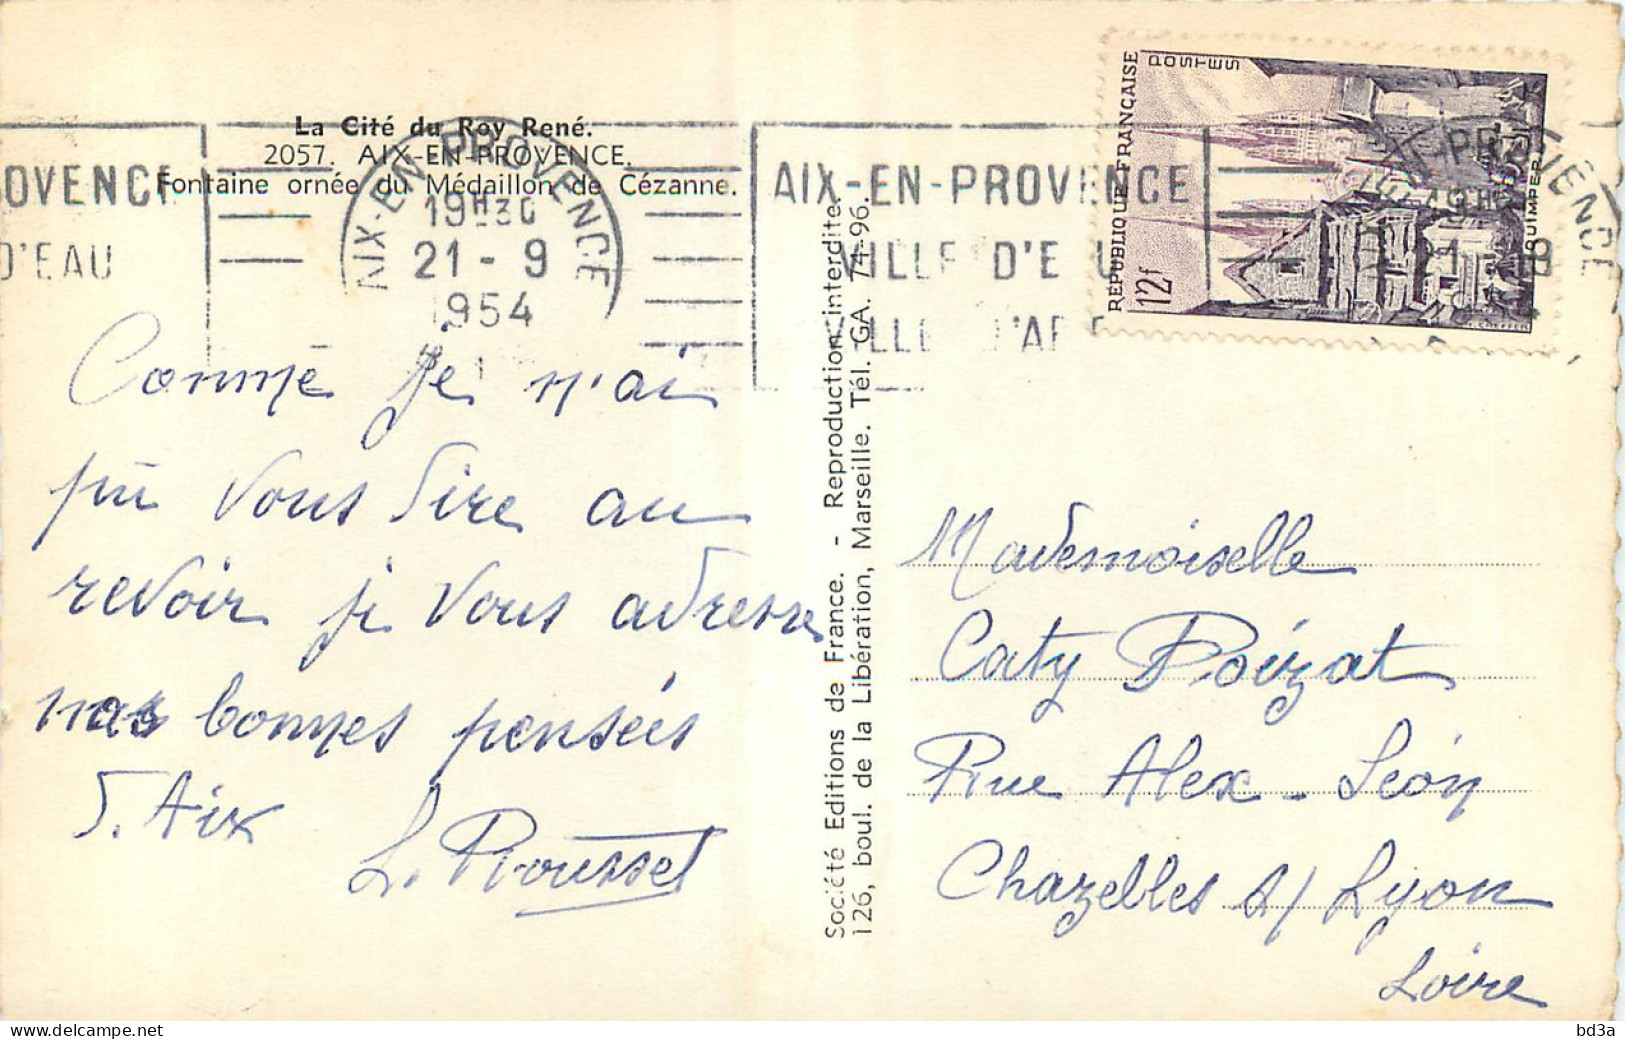 La Cité du Roy René.
2057. AIX-EN-PROVENCE.
Fontaine ornée du Médaillon de Cézanne.
OVENCE
D'EAU
AIX-EN-PROVENCE
19H30
21 - 9
1954
AIX-EN-PROVENCE
VILLE D'EAU
VILLE D'AR
RÉPUBLIQUE FRANÇAISE
POSTES
12f
QUIMPER
Comme je n'ai
pu vous dire au
revoir je vous adresse
nos bonnes pensées
L. Rousset
Société Editions de France. - Reproduction interdite.
126, boul. de la Libération, Marseille. Tél. GA. 74-96.
Mademoiselle
Caty Poizat
Rue Alex - Léon
Chazelles s/ Lyon
Loire
bd3a